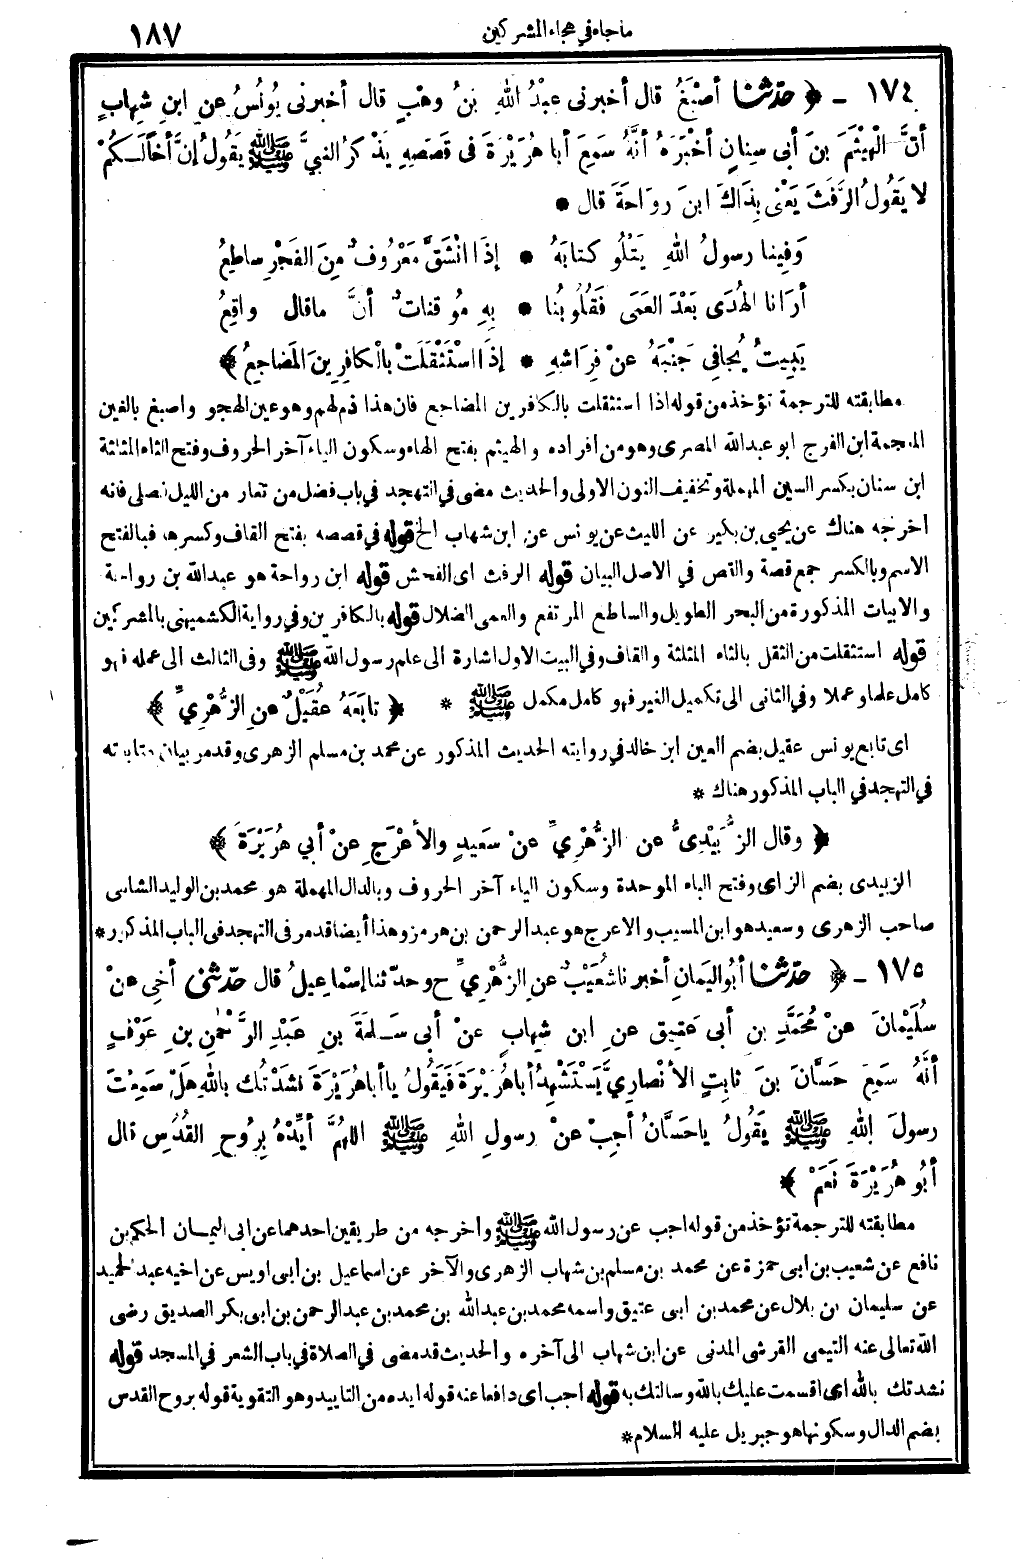 ماجاء في هجاء المشركين ١٨٧
١٧٤ ـ ﴿ حَدَّثَنَا أصْبَغُ قال أخبرنى عبْدُ اللهِ بنُ وهْبٍ قال أخبرنى يُونُسُ عنِ ابنِ شِهابٍ
أنَّ الْهيْثَمَ بنَ أبى سِنانٍ أخْبَرَهُ أنَّهُ سَمِعَ أبا هُرَيْرَةَ فى قَصَصِهِ يذْكرُ النبيَّ ﷺ يقُولُ إنَّ أخاً لَكُمْ
لا يَقُولُ الرَّفَثَ يَعْنى بِذَاكَ ابنَ رواحَةَ قال *
وَفِينا رسولُ اللهِ يَتْلُو كتابَهُ * إذَا انْشَقَّ مَعْرُوفٌ مِنَ الفَجْرِ ساطِعُ
أرَانا الهُدَى بَعْدَ العَمَى فَقُلُوبُنا * بِهِ مُوقناتٌ أنَّ ماقال واقِعُ
يَبِيتُ يُجافِي جَنْبَهُ عنْ فِرَاشِهِ * إذَا اسْتَثْقَلَتْ بالْكافِرِينَ المَضاجِعُ ﴾
مطابقته للترجمة تؤخذ من قوله اذا استثقلت بالكافرين المضاجع فان هذا ذم لهم وهو عين الهجو واصبغ بالغين
المعجمة ابن الفرج ابو عبد الله المصرى وهو من افراده والهيثم بفتح الهاء وسكون الياء آخر الحروف وفتح الثاء المثلثة
ابن سنان بكسر السين المهملة وتخفيف النون الاولى والحديث مضى في التهجد في باب فضل من تعار من الليل فصلى فانه
اخرجه هناك عن يحيى بن بكير عن الليث عن يونس عن ابن شهاب الخ قوله في قصصه بفتح القاف وكسرها فبالفتح
الاسم وبالكسر جمع قصة والقص في الاصل البيان قوله الرفث اى الفحش قوله ابن رواحة هو عبد الله بن رواحة
والابيات المذكورة من البحر الطويل والساطع المرتفع والعمى الضلال قوله بالكافرين وفي رواية الكشميهنى بالمشركين
قوله استثقلت من الثقل بالثاء المثلثة والقاف وفي البيت الاول اشارة الى علم رسول الله ﷺ وفى الثالث الى عمله فهو
كامل علما وعملا وفي الثانى الى تكميل الغير فهو كامل مكمل ﷺ * ﴿ تابَعَهُ عُقَيْلٌ عنِ الزُّهْرِيِّ ﴾
اى تابع يونس عقيل بضم العين ابن خالد في روايته الحديث المذكور عن محمد بن مسلم الزهرى وقد مر بيان متابعته
في التهجد في الباب المذكور هناك *
﴿ وقال الزُّبَيْدِىُّ عن الزُّهْرِيِّ عنْ سَعِيدٍ والأعْرَجِ عنْ أبي هُرَيْرَةَ ﴾
الزبيدى بضم الزاى وفتح الباء الموحدة وسكون الياء آخر الحروف وبالدال المهملة هو محمد بن الوليد الشامى
صاحب الزهرى وسعيد هو ابن المسيب والاعرج هو عبد الرحمن بن هرمز وهذا أيضا قد مر فى التهجد فى الباب المذكور *
١٧٥ ـ ﴿ حَدَّثَنَا أبُو اليَمانِ أخبرنا شُعَيْبٌ عنِ الزُّهْرِيِّ ح وحدّثنا إسْماعِيلُ قال حَدَّثَنى أخِى عنْ
سُلَيْمانَ عنْ مُحَمَّدِ بنِ أبى عَتِيقٍ عنِ ابنِ شِهابٍ عنْ أبى سَلَمَةَ بنِ عبْدِ الرَّحْمنِ بنِ عَوْفٍ
أنَّهُ سَمِعَ حَسَّانَ بنَ ثابِتٍ الأنْصارِيَّ يَسْتَشْهِدُ أباهُرَيْرَةَ فَيَقُولُ يا أباهُرَيْرَةَ نشَدْتُكَ باللهِ هَلْ سَمِعْتَ
رسولَ اللهِ ﷺ يقُولُ ياحَسَّانُ أجِبْ عنْ رسولِ اللهِ ﷺ اللَّهُمَّ أيِّدْهُ بِرُوحِ القُدُسِ قال
أبُو هُرَيْرَةَ نَعَمْ ﴾
مطابقته للترجمة تؤخذ من قوله اجب عن رسول الله ﷺ واخرجه من طريقين احدهما عن ابى اليمان الحكم بن
نافع عن شعيب بن ابى حمزة عن محمد بن مسلم بن شهاب الزهرى والآخر عن اسماعيل بن ابى اويس عن اخيه عبد الحميد
عن سليمان بن بلال عن محمد بن ابى عتيق واسمه محمد بن عبد الله بن محمد بن عبد الرحمن بن ابى بكر الصديق رضى
الله تعالى عنه التيمى القرشى المدنى عن ابن شهاب الى آخره والحديث قد مضى في الصلاة في باب الشعر في المسجد قوله
نشدتك بالله اى اقسمت عليك بالله وسالتك به قوله اجب اى دافعا عنه قوله ايده من التاييد وهو التقوية قوله بروح القدس
بضم الدال وسكونها هو جبريل عليه السلام *